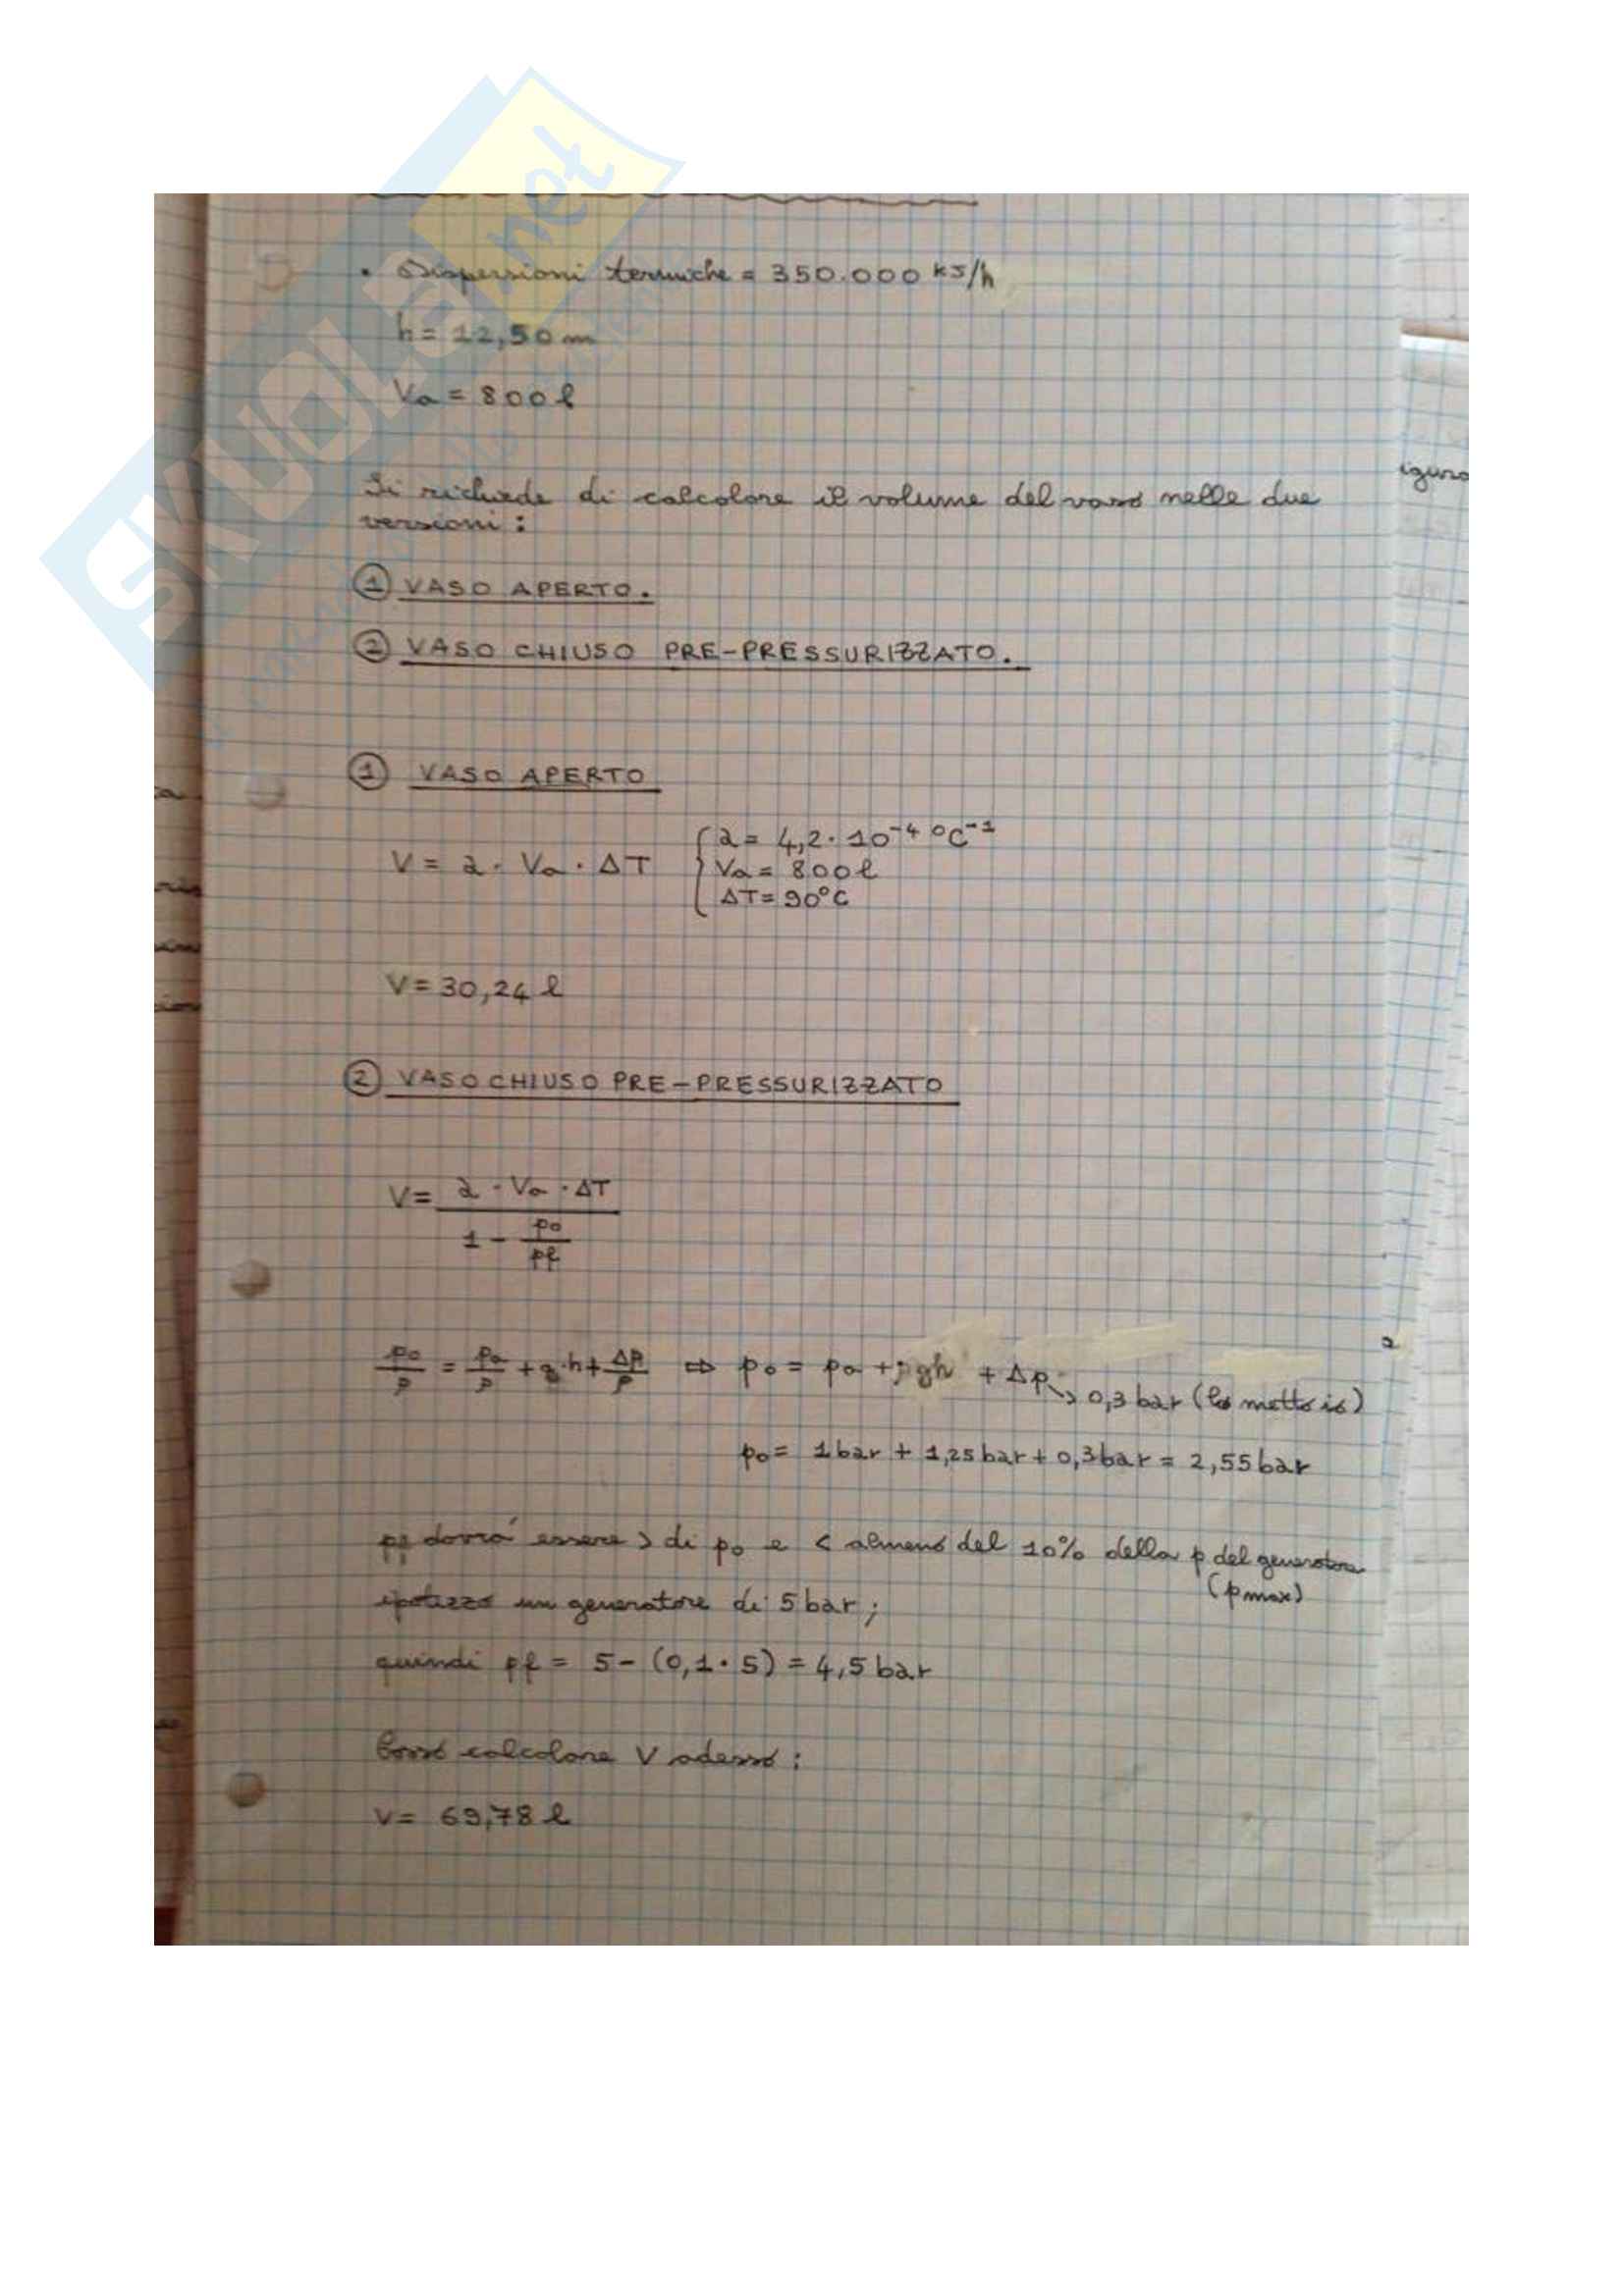 SKUOLA.net
• Dispersioni termiche = 350.000 kJ/h
h = 12,50 m
Va = 800 l
iguro
Si richiede di calcolare il volume del vaso nelle due
versioni :
① VASO APERTO.
② VASO CHIUSO PRE-PRESSURIZZATO.
① VASO APERTO
V = a · Va · ΔT { a = 4,2 · 10⁻⁴ °C⁻¹
Va = 800 l
ΔT = 90°C
V = 30,24 l
② VASO CHIUSO PRE-PRESSURIZZATO
V = a · Va · ΔT / (1 - po/pf)
po/ρ = pa/ρ + g·h + Δp/ρ ⇨ po = pa + ρgh + Δp → 0,3 bar (lo metto io)
po = 1 bar + 1,25 bar + 0,3 bar = 2,55 bar
pf dovrà essere > di po e < almeno del 10% della p del generatore
(pmax)
ipotizzo un generatore di 5 bar ;
quindi pf = 5 - (0,1 · 5) = 4,5 bar
Posso calcolare V adesso :
V = 69,78 l